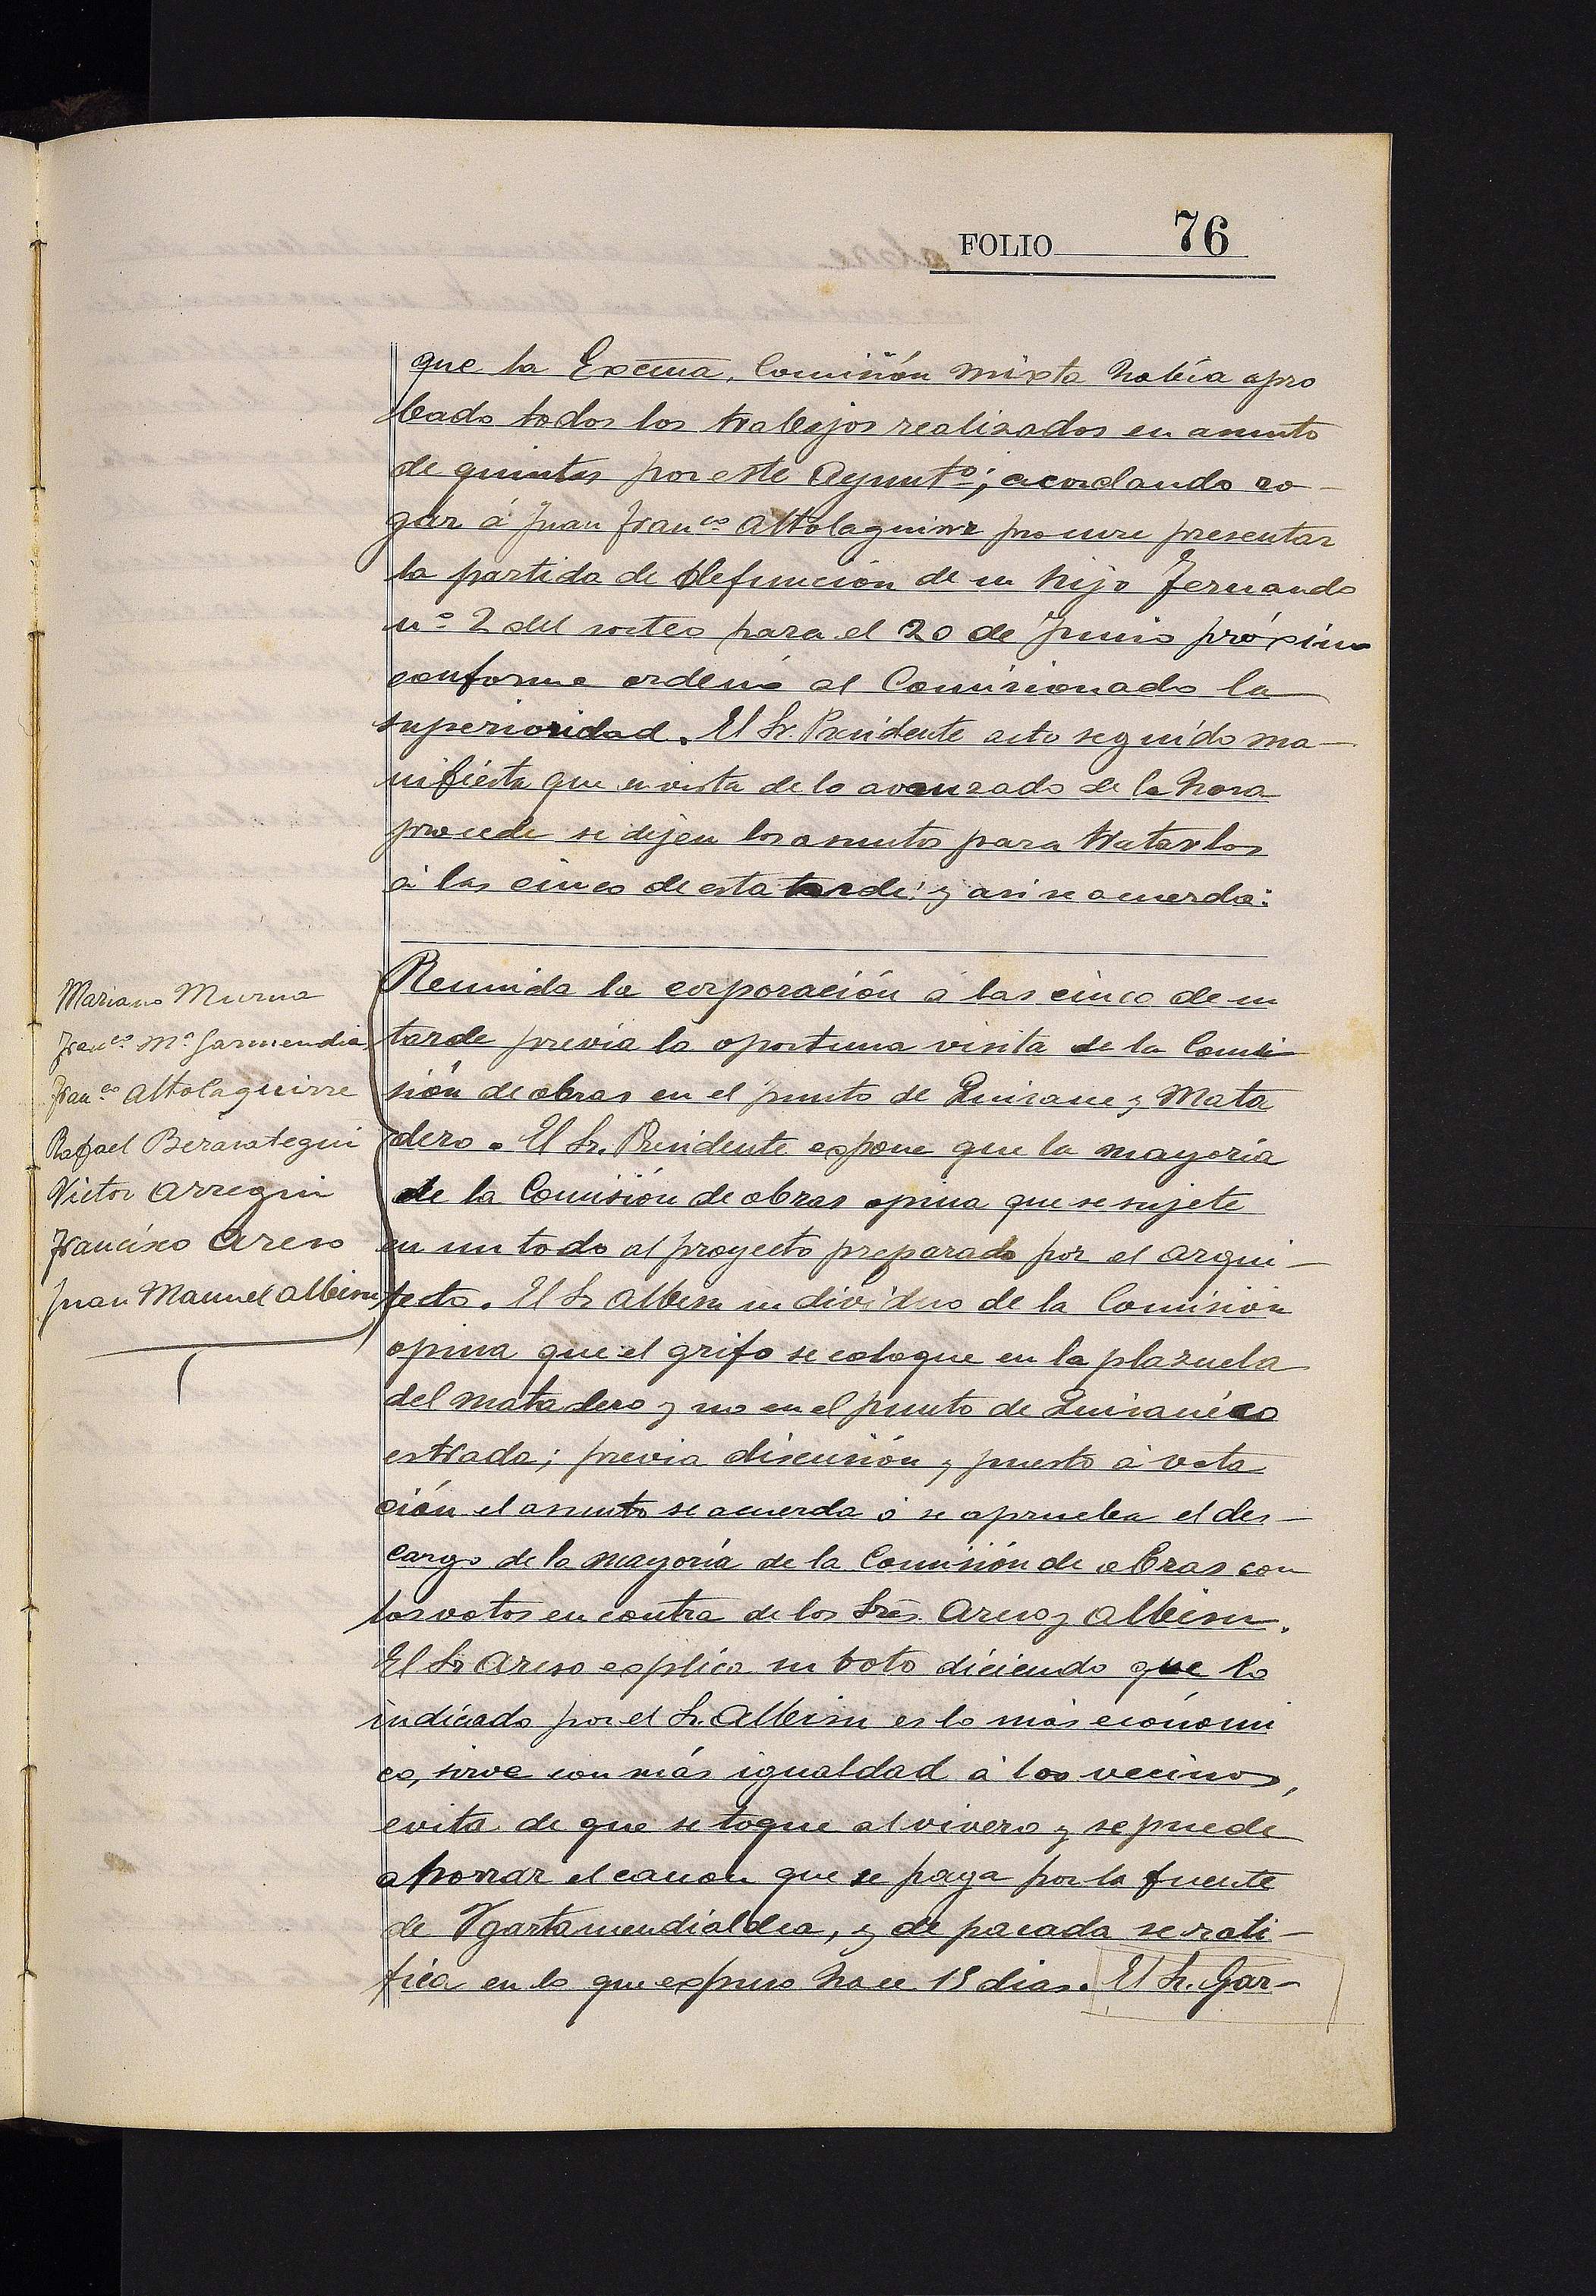 FOLIO 76
que la Excma. Comisión mixta había apro
bado todos los trabajos realizados en asunto
de quintas por este Ayuntº; acordando ro-
gar á Juan Franco Altolaguirre procure presentar
la partida de defunción de su hijo Fernando
nº 2 del sorteo para el 20 de Junio próximo
conforme ordenó al Comisionado la
superioridad. El Sr. Presidente acto seguido ma-
nifiesta que en vista de lo avanzado de la hora
procede se dejen los asuntos para tratarlos
á las cinco de esta tarde y asi se acuerda:
Reunida la corporación á las cinco de su
tarde previa la oportuna visita de la Comi
sión de obras en el punto de y Mata
dero. El Sr. Presidente expone que la mayoría
de la Comisión de obras opina que se sujete
en un todo al proyecto preparado por el arqui-
tecto. El Sr Albisu individuo de la Comisión
opina que el grifo se coloque en la plazuela
del matadero y no en el punto de
estrada; previa discusión y puesto á vota
ción el asunto se acuerda ó se aprueba el des-
cargo de la mayoría de la Comisión de obras con
los votos en contra de los Sres. Areso y Albisu.
El Sr Areso explica su boto diciendo que lo
indicado por el Sr. Albisu es lo más económi
co, sirve con más igualdad á los vecinos,
evita de que se toque al vivero y se puede
ahorrar el canon que se paga por la fuente
de Ygartamendialdea, y de pasada se rati-
fica en lo que expuso hace 15 dias. El Sr. Gar-
Mariano Murua
Franco Mª Garmendia
Franco Altolaguirre
Rafael Berasategui
Victor Arregui
Francisco Areso
Juan Manuel Albisu